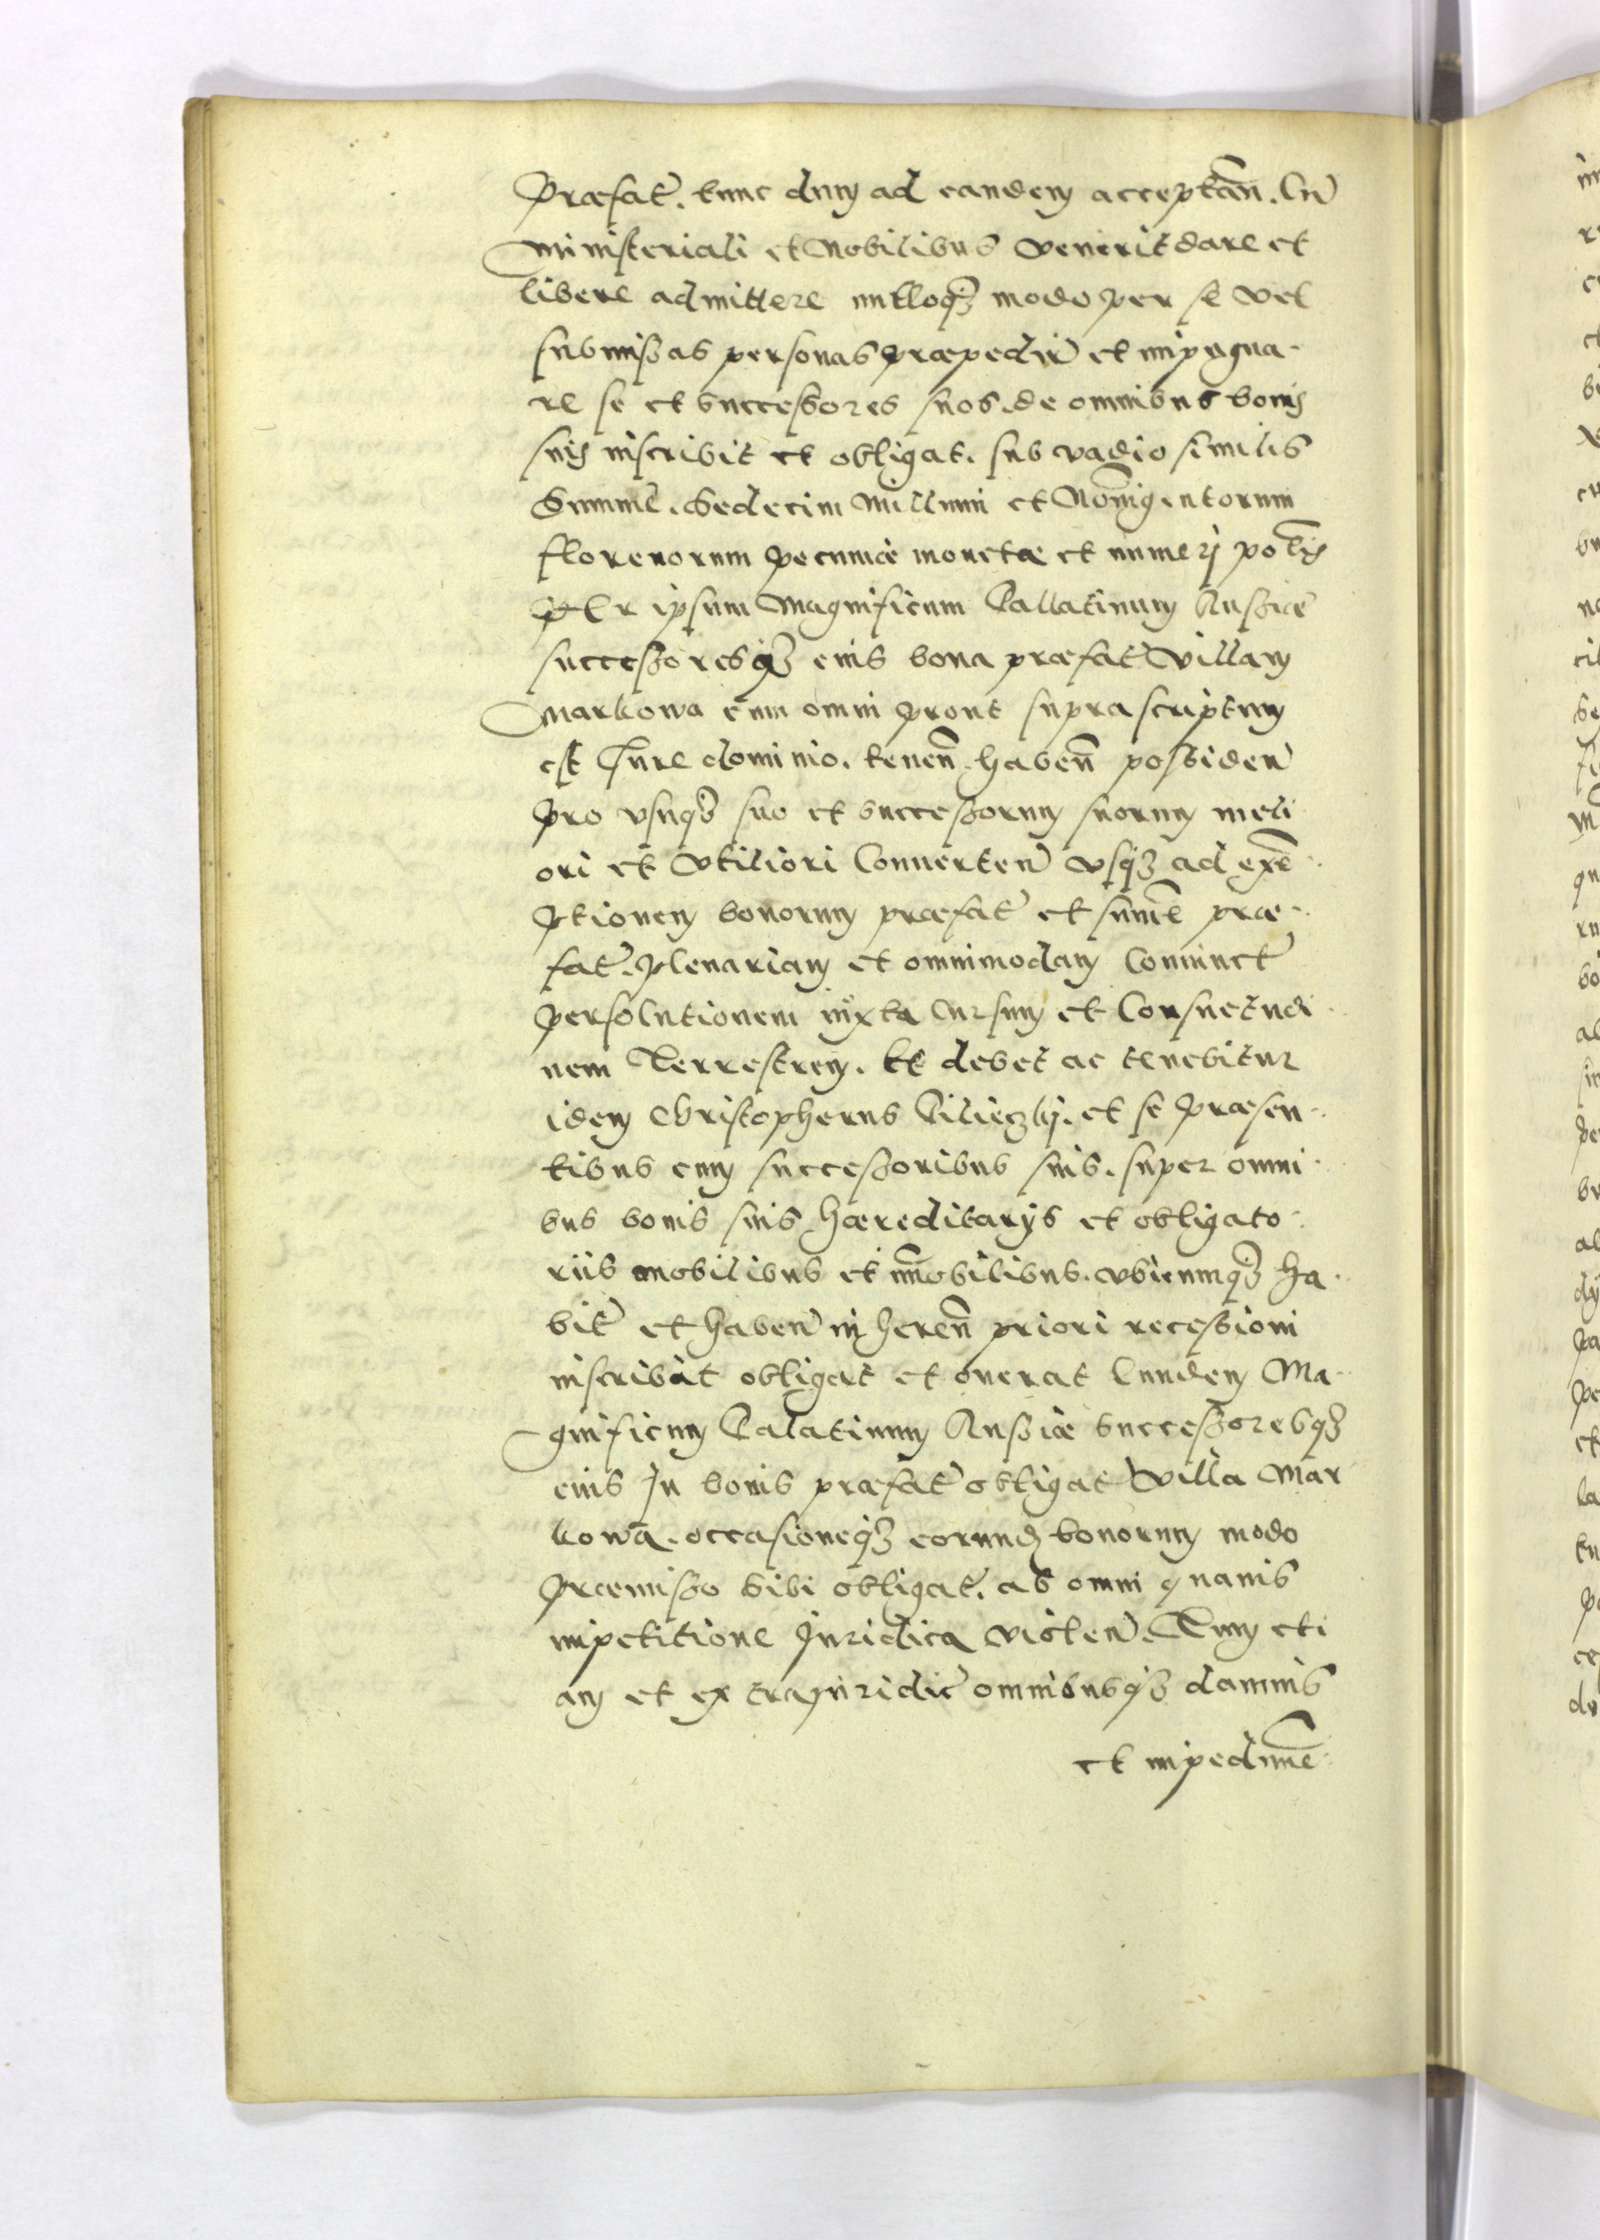 Præfat. tunc dum ad eandem acceptan. cu
ministeriali et Nobilibus venerit dare et
libere admittere nulloqz modo per se vel
submissas personas præpedir et impugna-
re se et successores suos de omnibus bonis
suis inscribit et obligat. sub vadio similis
Summe. Sedecim Millium et Nonigentorum
florenorum pecuniæ monetæ et numeri polis
Per ipsum Magnificum Pallatinum Russiæ
successoresqz eius bona præfat villam
Markowa cum omni prout suprascriptum
est Iure dominio. tenen. haben possiden
pro vsuqz suo et successorum suorum meli
ori et vtiliori conuerten vsqz ad exe-
ptionem bonorum præfat et summe præ-
fat. plenariam et omnimodam coniunct
persolutionem iuxta cursum et consuetudi-
nem Terrestrem. Et debet ac tenebitur
idem Christopherus Pilieczky. et se præsen-
tibus cum successoribus suis. super omni-
bus bonis suis hæreditarys et obligato-
riis mobilibus et immobilibus. vbicumqz ha-
bit et haben in heren priori recessioni
inscribit obligat et onerat Eundem Ma-
gnificum Palatinum Russiæ successoresqz
eius In bonis præfat obligat villa Mar
kowa. occasioneqz eorund bonorum modo
præmisso sibi obligat. ab omni quauis
impetitione Juridica violen. Tum eti
am et extrajuridic omnibusqz damnis
et impedime-